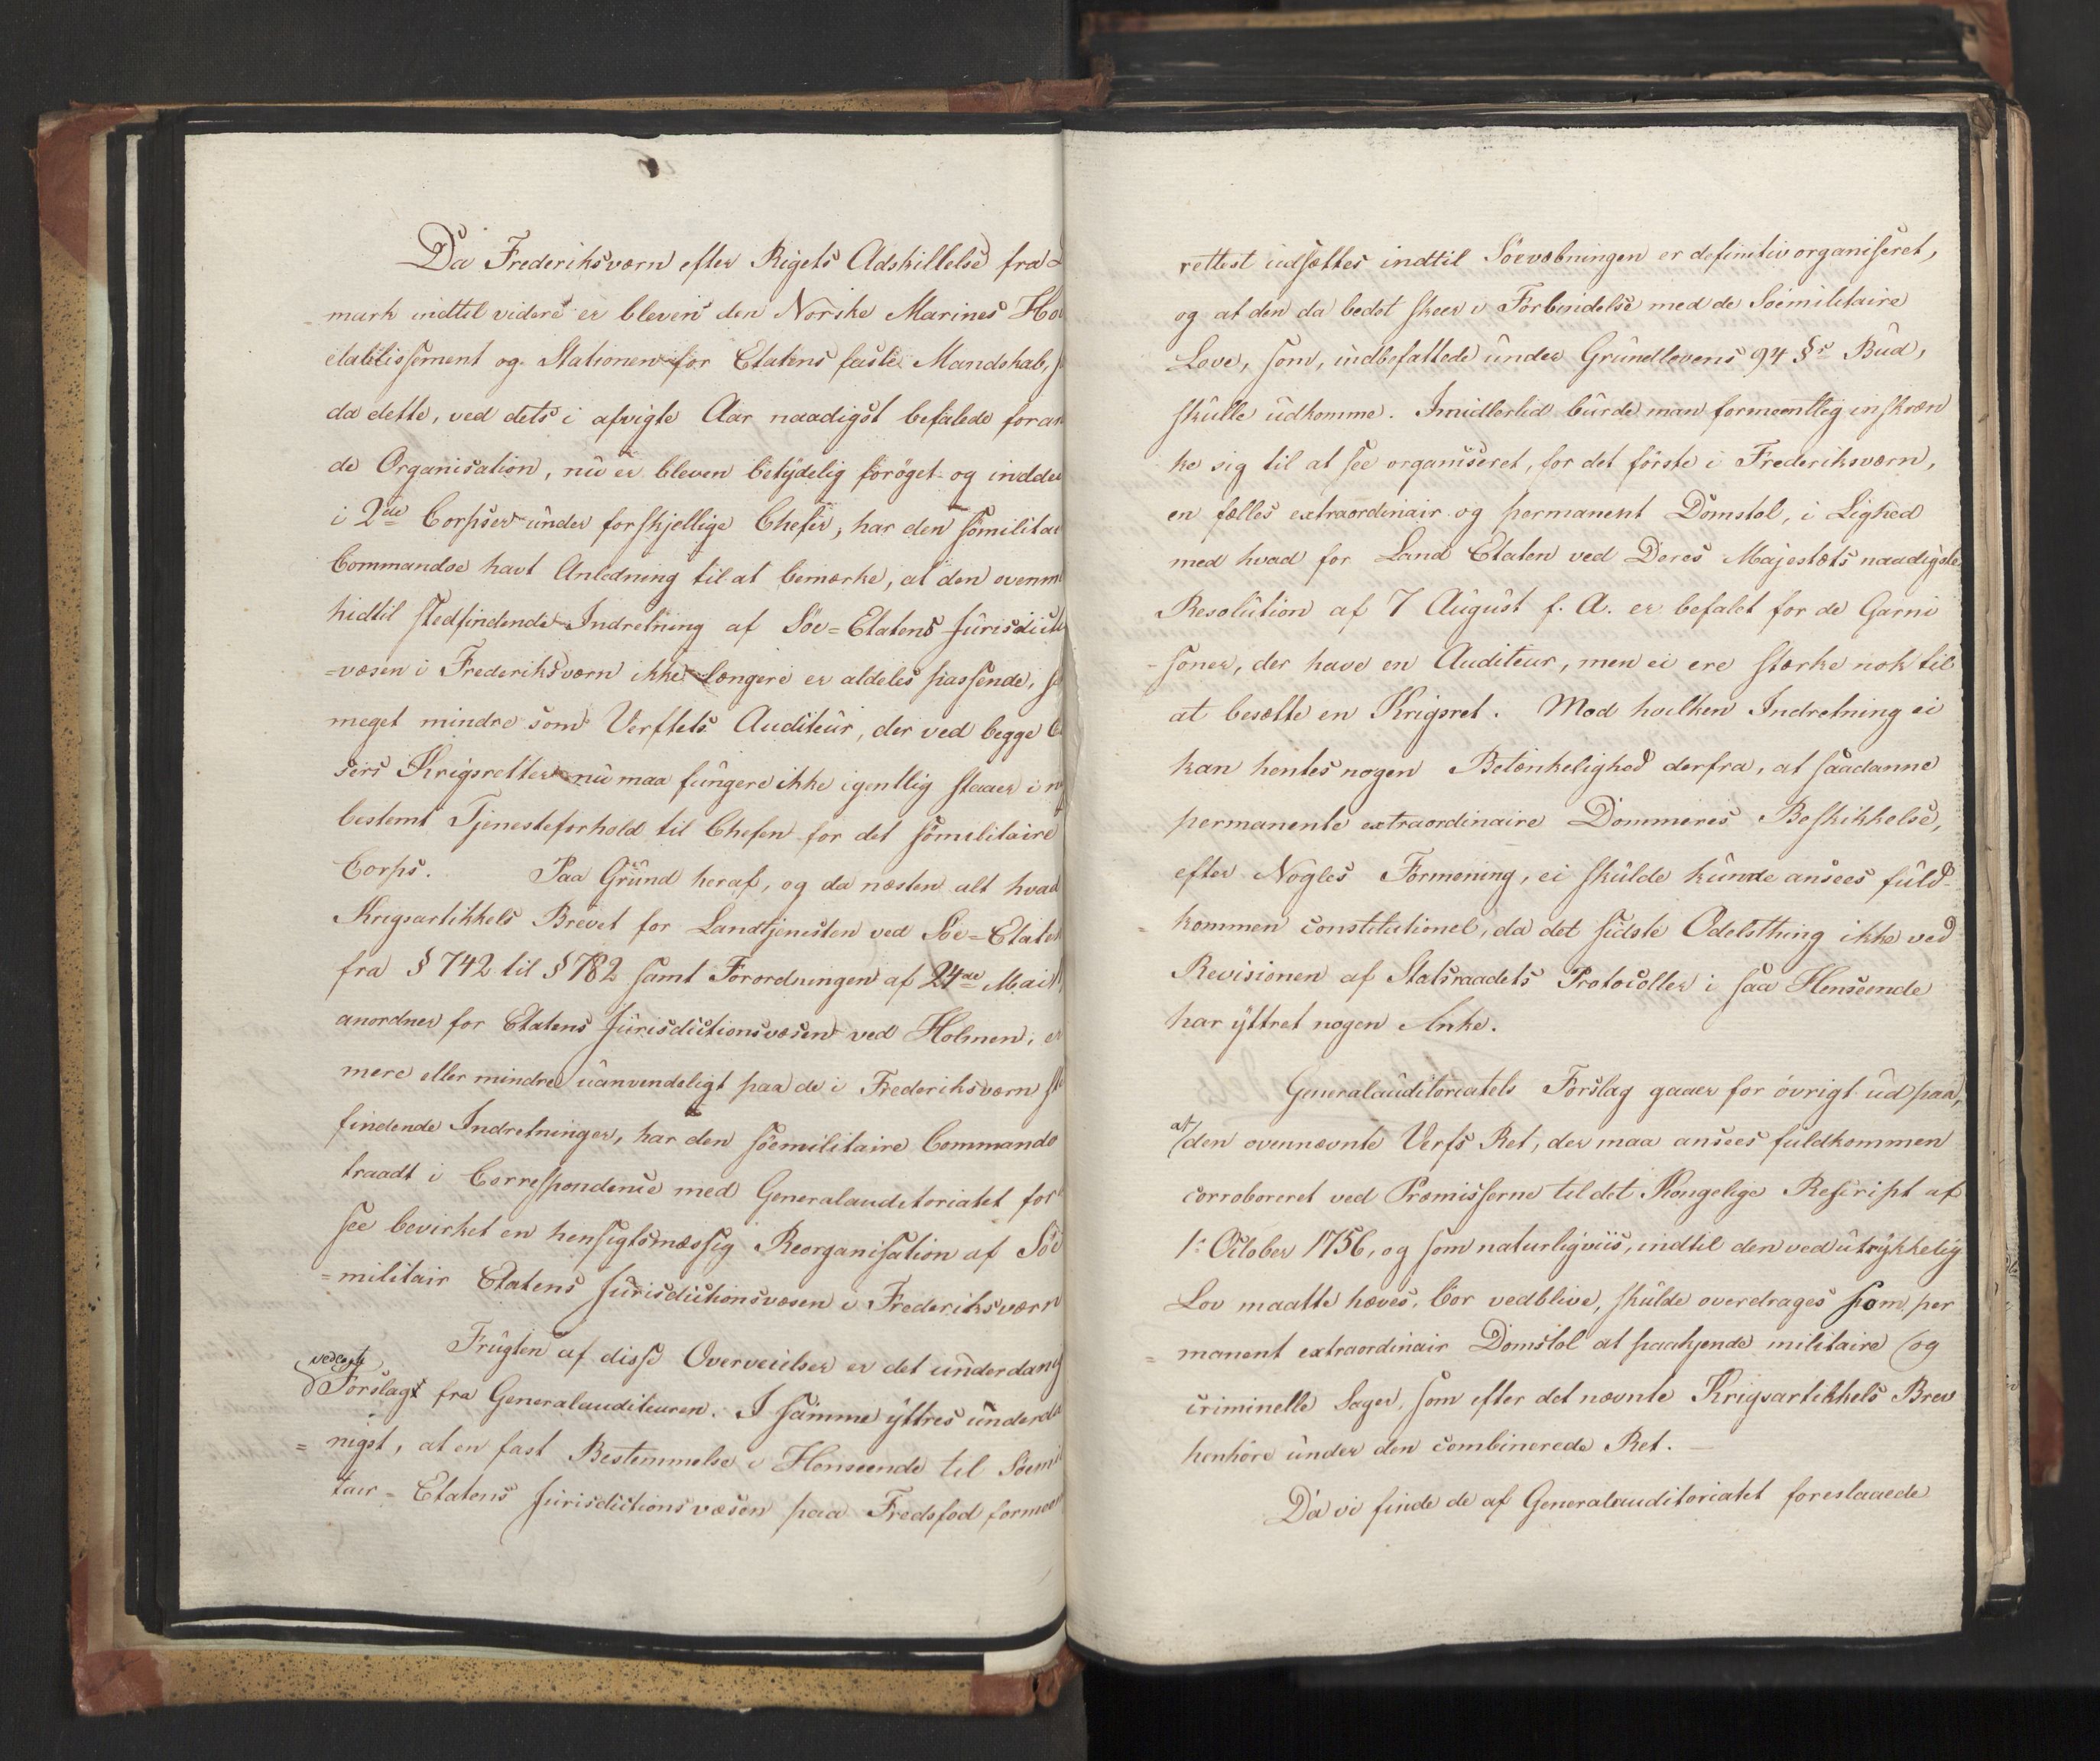 Da Frederiksværn efter Rigets Adskillelse fra
mark indtil videre er bleven den Norske Marines Ho
etablissement og Stationen for Etatens faste Mandskab, s
da dette, ved dets i afvigte Aar naadigst befalede foran
de Organisation, nu er bleven betydelig forøget og inddee
i 2de Corpser under forskjellige Chefer, har den sømilitai
Commandoe havt Anledning til at bemærke, at den ovenme
hidtil stedfindende Indretning af Söe=Etatens Jurisdicti
=væsen i Frederiksværn ikke længere er aldeles passende, s
meget mindre som Verftets Auditeur, der ved begge C
sers Krigsretter nu maa fungere ikke egentlig staaer i n
bestemt Tjenesteforhold til Chefen for det sømilitaire
Corps. Paa Grund heraf, og da næsten alt hvad
Krigsartikkels Brevet for Landtjenesten ved Söe=Etaten
fra § 742 til § 782 samt Forordningen af 24de Mai
anordner for Etatens Jurisdictionsvæsen ved Holmen, er
mere eller mindre uanvendeligt paa de i Frederiksværn ste
findende Indretninger, har den söemilitaire Commando
traadt i Correspondence med Generalauditoriatet for
see bevirket en hensigtsmæssig Reorganisation af Söe
=militair Etatens Jurisdictionsvæsen i Frederiksværn
Frugten af disse Overveielser er det underdanig
vedlagte
Forslag fra Generalauditeuren. I samme yttres underda
=nigst, at en fast Bestemmelse i Henseende til Söemil
tair=Etatens Jurisdictionsvæsen paa Fredsfod formeen
rettest udsættes indtil Söevæbningen er definitiv organiseret,
og at den da bedst skeer i Forbindelse med de Söemilitaire
Love, som, indbefattede under Grundlovens 94 §s Bud,
skulle udkomme. Imidlertid burde man formeentlig inskræn
ke sig til at see organiseret, for det förste i Frederiksværn,
en fælles extraordinair og permanent Domstol, i Lighed
med hvad for Land Etaten ved Deres Majestæts naadigste
Resolution af 7 August f. A. er befalet for de Garni
=soner, der have en Auditeur, men ei ere stærke nok til
at besætte en Krigsret. Mod hvilken Indretning ei
kan hentes nogen Betænkelighed derfra, at saadanne
permanente extraordinaire Dommeres Beskikkelse,
efter Nogles Formening, ei skulde kunne ansees fuld-
=kommen constitutionel, da det sidste Odelsthing ikke ved
Revisionen af Statsraadets Protocoller i saa Henseende
har yttret nogen Anke.
Generalauditoriatets Forslag gaaer for övrigt ud paa,
at
den ovennævnte Verfs Ret, der maa ansees fuldkommen
corroboreret ved Præmisserne til det Kongelige Rescript af
1. October 1756, og som naturligviis, indtil den ved utrykkelig
Lov maatte hæves, bor vedblive, skulde overdrages som per
=manent extraordinair Domstol at paakjende militaire og
criminelle Sager, som efter det nævnte Krigsartikkels Brev
henhöre under den combinerede Ret. —
Da vi finde de af Generalauditoriatet foreslaaede